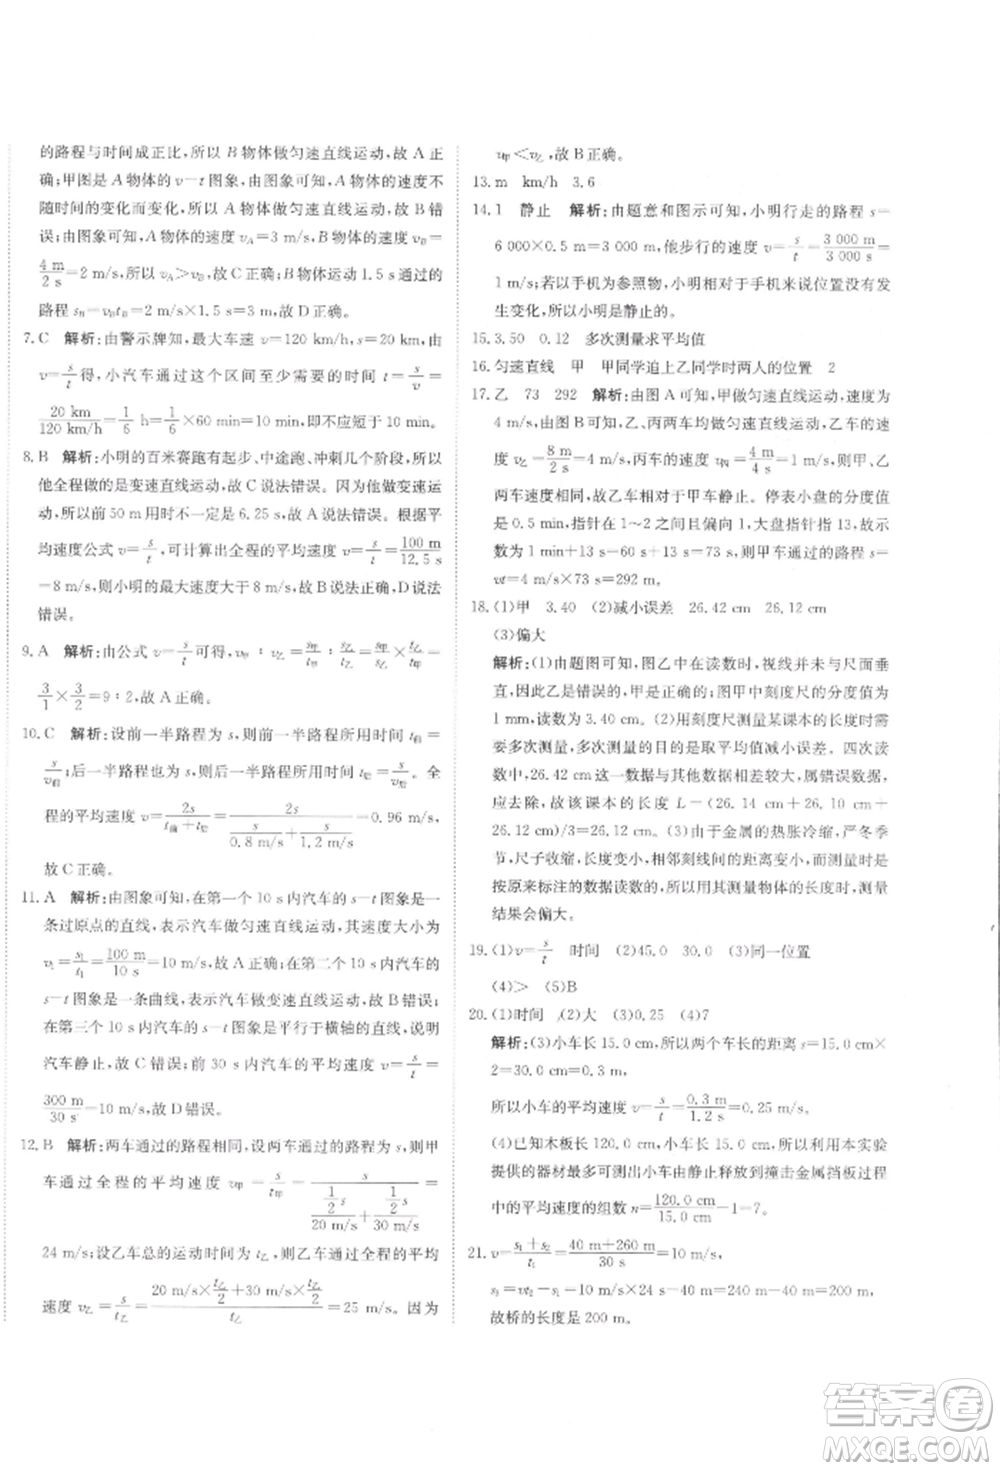 的路程与时间成正比,所以 B 物体做匀速直线运动,故 A 正
确;甲图是 A 物体的 v—t 图象,由图象可知,A 物体的速度不
随时间的变化而变化,所以 A 物体做匀速直线运动,故 B 错
误;由图象可知,A 物体的速度 vA=3 m/s,B 物体的速度 vB=
4 m/2 s=2 m/s,所以 vA>vB,故 C 正确;B 物体运动 1.5 s 通过的
路程 sB=vBtB=2 m/s×1.5 s=3 m,故 D 正确。
7. C 解析:由警示牌知,最大车速 v=120 km/h,s=20 km,由
v=s/t 得,小汽车通过这个区间至少需要的时间 t=s/v=
20 km/120 km/h=1/6 h=1/6×60 min=10 min,即不应少于 10 min。
8. B 解析:小明的百米赛跑有起步、中途跑、冲刺几个阶段,所以
他全程做的是变速直线运动,故 C 说法错误。因为不是匀速运
动,所以前 50 m 用时不一定是 6.25 s,故 A 说法错误。根据平
均速度公式 v=s/t,可计算出全程的平均速度 v=s/t=100 m/12.5 s
=8 m/s,则小明的最大速度大于 8 m/s,故 B 说法正确、D 说法
错误。
9. A 解析:由公式 v=s/t 可得,v甲∶v乙=s甲/t甲∶s乙/t乙=s甲/s乙×t乙/t甲=
3/1×3/2=9∶2,故 A 正确。
10. C 解析:设前一半路程为 s,则前一半路程所用时间 t前=
s/v前;后一半路程为 s,则后一半路程所用时间 t后=s/v后。全
程的平均速度 v=2s/(t前+t后)=2s/(s/0.8 m/s+s/1.2 m/s)=0.96 m/s,
故 C 正确。
11. A 解析:由图象可知,在第一个 10 s 内汽车的 s—t 图象是一
条过原点的直线,表示汽车做匀速直线运动,其速度大小为
v1=s1/t1=100 m/10 s=10 m/s,故 A 正确;在第二个 10 s 内汽车的
s—t 图象是一条曲线,表示汽车做变速直线运动,故 B 错误;
在第三个 10 s 内汽车的 s—t 图象是平行于横轴的直线,说明
汽车静止,故 C 错误;在 0~30 s 内汽车的平均速度 v=s/t=
300 m/30 s=10 m/s,故 D 错误。
12. B 解析:两车通过的路程相同,设两车通过的路程为 s,则甲
车通过全程的平均速度 v甲=s/t甲=s/(1/2 s/20 m/s+1/2 s/30 m/s)=
24 m/s;设乙车总的运动时间为 t乙,则乙车通过全程的平均
速度 v乙=s/t乙=(20 m/s×t乙/2+30 m/s×t乙/2)/t乙=25 m/s。因为
v甲<v乙,故 B 正确。
13. m km/h 3.6
14. 1 静止 解析:由题意和图示可知,小明行走的路程 s=
6 000×0.5 m=3 000 m,他步行的速度 v=s/t=3 000 m/3 000 s=
1 m/s;若以手机为参照物,小明相对于手机的位置没有
发生变化,所以小明是静止的。
15. 3.50 0.12 多次测量求平均值
16. 匀速直线 甲 甲同学追上乙同学时两人的位置 2
17. 乙 73 292 解析:由图 A 可知,甲做匀速直线运动,速度为
4 m/s,由图 B 知,乙、丙两车均做匀速直线运动,乙车的速
度 v乙=8 m/2 s=4 m/s,丙车的速度 v丙=4 m/4 s=1 m/s,所以甲、乙
两车速度相同,故乙车相对于甲车静止。停表小盘的分度值
是 0.5 min,指针在 1~2 之间且偏向 1,大盘指针指 13,故示
数为 1 min+13 s=60 s+13 s=73 s,则甲车通过的路程 s=
vt=4 m/s×73 s=292 m。
18. (1)甲 3.40 (2)减小误差 26.42 cm 26.12 cm
(3)偏大
解析:(1)由题图可知,图乙中在读数时,视线并未与尺面垂
直,因此乙是错误的,甲是正确的;图甲中刻度尺的分度值为
1 mm,读数为 3.40 cm。(2)用刻度尺测量某课本的长度时需
要多次测量,多次测量的目的是取平均值减小误差。四次读
数中,26.42 cm 这一数据与其他数据相差较大,属错误数据,
应去除,故该课本的长度 L=(26.12 cm+26.13 cm+
26.12 cm)/3=26.12 cm。(3)由于金属的热胀冷缩,严冬季
节,尺子收缩,相邻刻线间的距离变小,测量物体长度时,还是
按原来标注的数据读数的,所以其测量物体的长度时,测量
结果会偏大。
19. (1)v=s/t 时间 (2)45.0 30.0 (3)同一位置
(4)> (5)B
20. (1)时间 (2)大 (3)0.25 (4)7
解析:(3)小车长 15.0 cm,所以两个车长的距离 s=15.0 cm×
2=30.0 cm=0.3 m,
所以小车的平均速度 v=s/t=0.3 m/1.2 s=0.25 m/s,
(4)已知木板长 120.0 cm,小车长 15.0 cm,所以利用本实验
提供的器材最多可测出小车由静止释放到撞击金属挡板过程
中的平均速度的组数 n=120.0 cm/15.0 cm-1=7。
21. v=(s1+s2)/t1=(40 m+260 m)/30 s=10 m/s,
s3=vt2-s1=10 m/s×24 s-40 m=240 m-40 m=200 m,
故桥的长度是 200 m。
答案圈
MXQE.COM